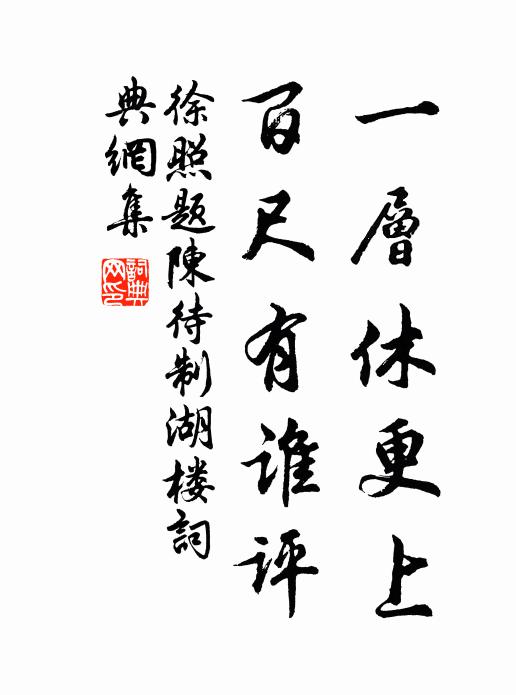 一層休更上
百尺有誰評
徐照题陳待制湖楼詞
典網集
詞典
网印